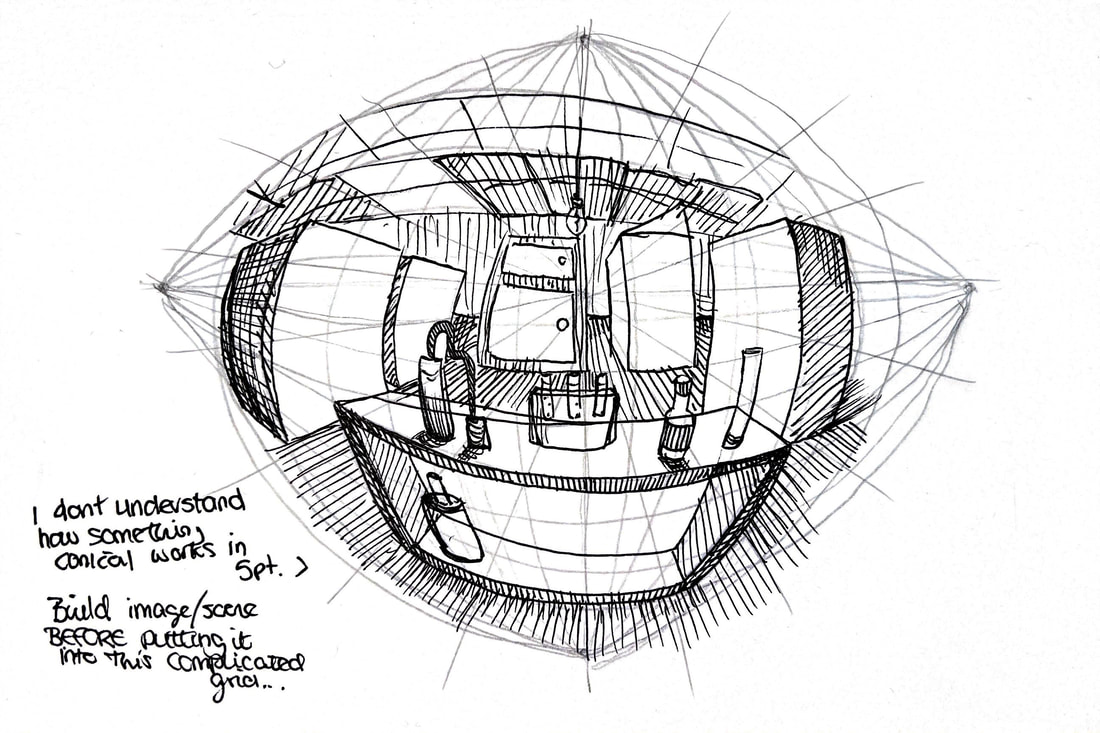 I dont understand
how something
conical works in
5pt. >
Build image/scene
BEFORE puttting it
into this complicated
grid...